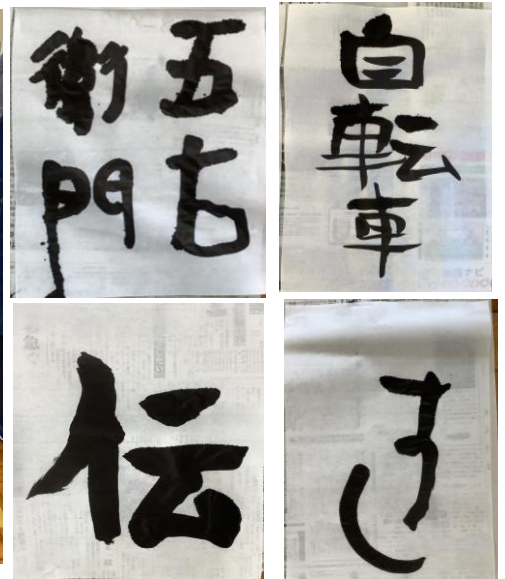 五右
衛門
自転車
伝